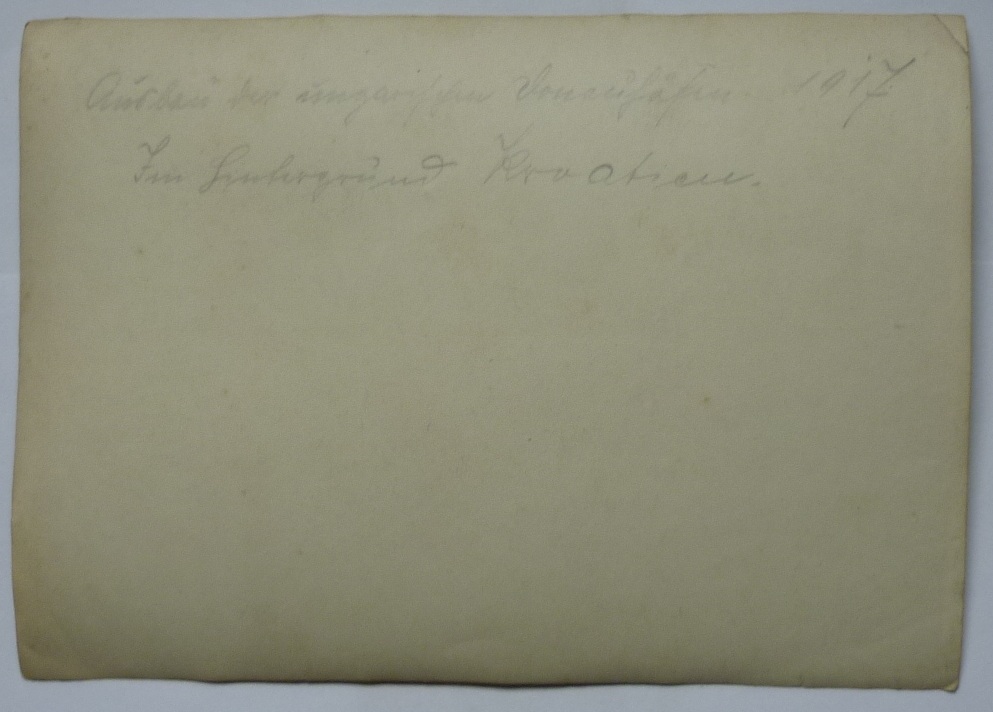 Ausbau der ungarischen Donauhäfen 1917
Im Hintergrund Kroatien.